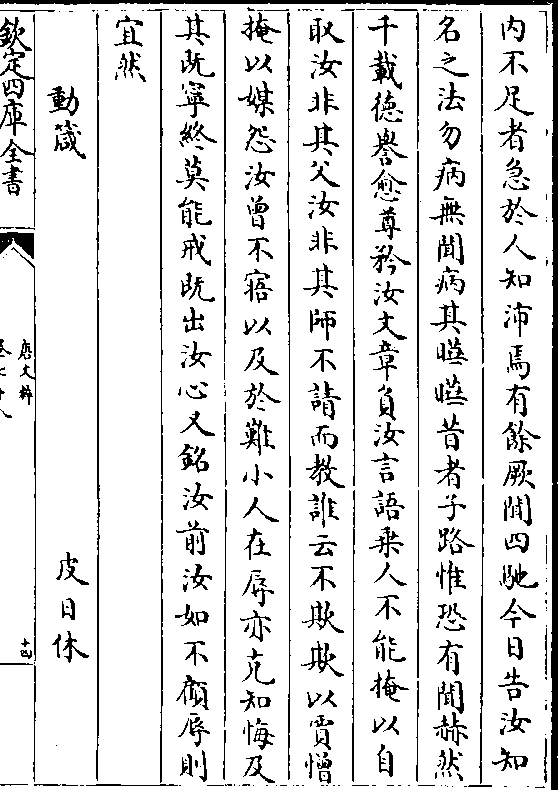 内不足者急於人知沛焉有餘厥聞四馳今日告汝知
名之法勿病無聞病其曄曄昔者子路惟恐有聞赫然
千載德譽愈尊矜汝文章負汝言語乘人不能掩以自
取汝非其父汝非其師不請而教誰云不欺欺以賈憎
掩以媒怨汝曾不寤以及於難小人在辱亦克知悔及
其既寧終莫能戒既出汝心又銘汝前汝如不顧辱則
宜然
動箴
皮日休
欽定四庫全書
唐文粹
十四